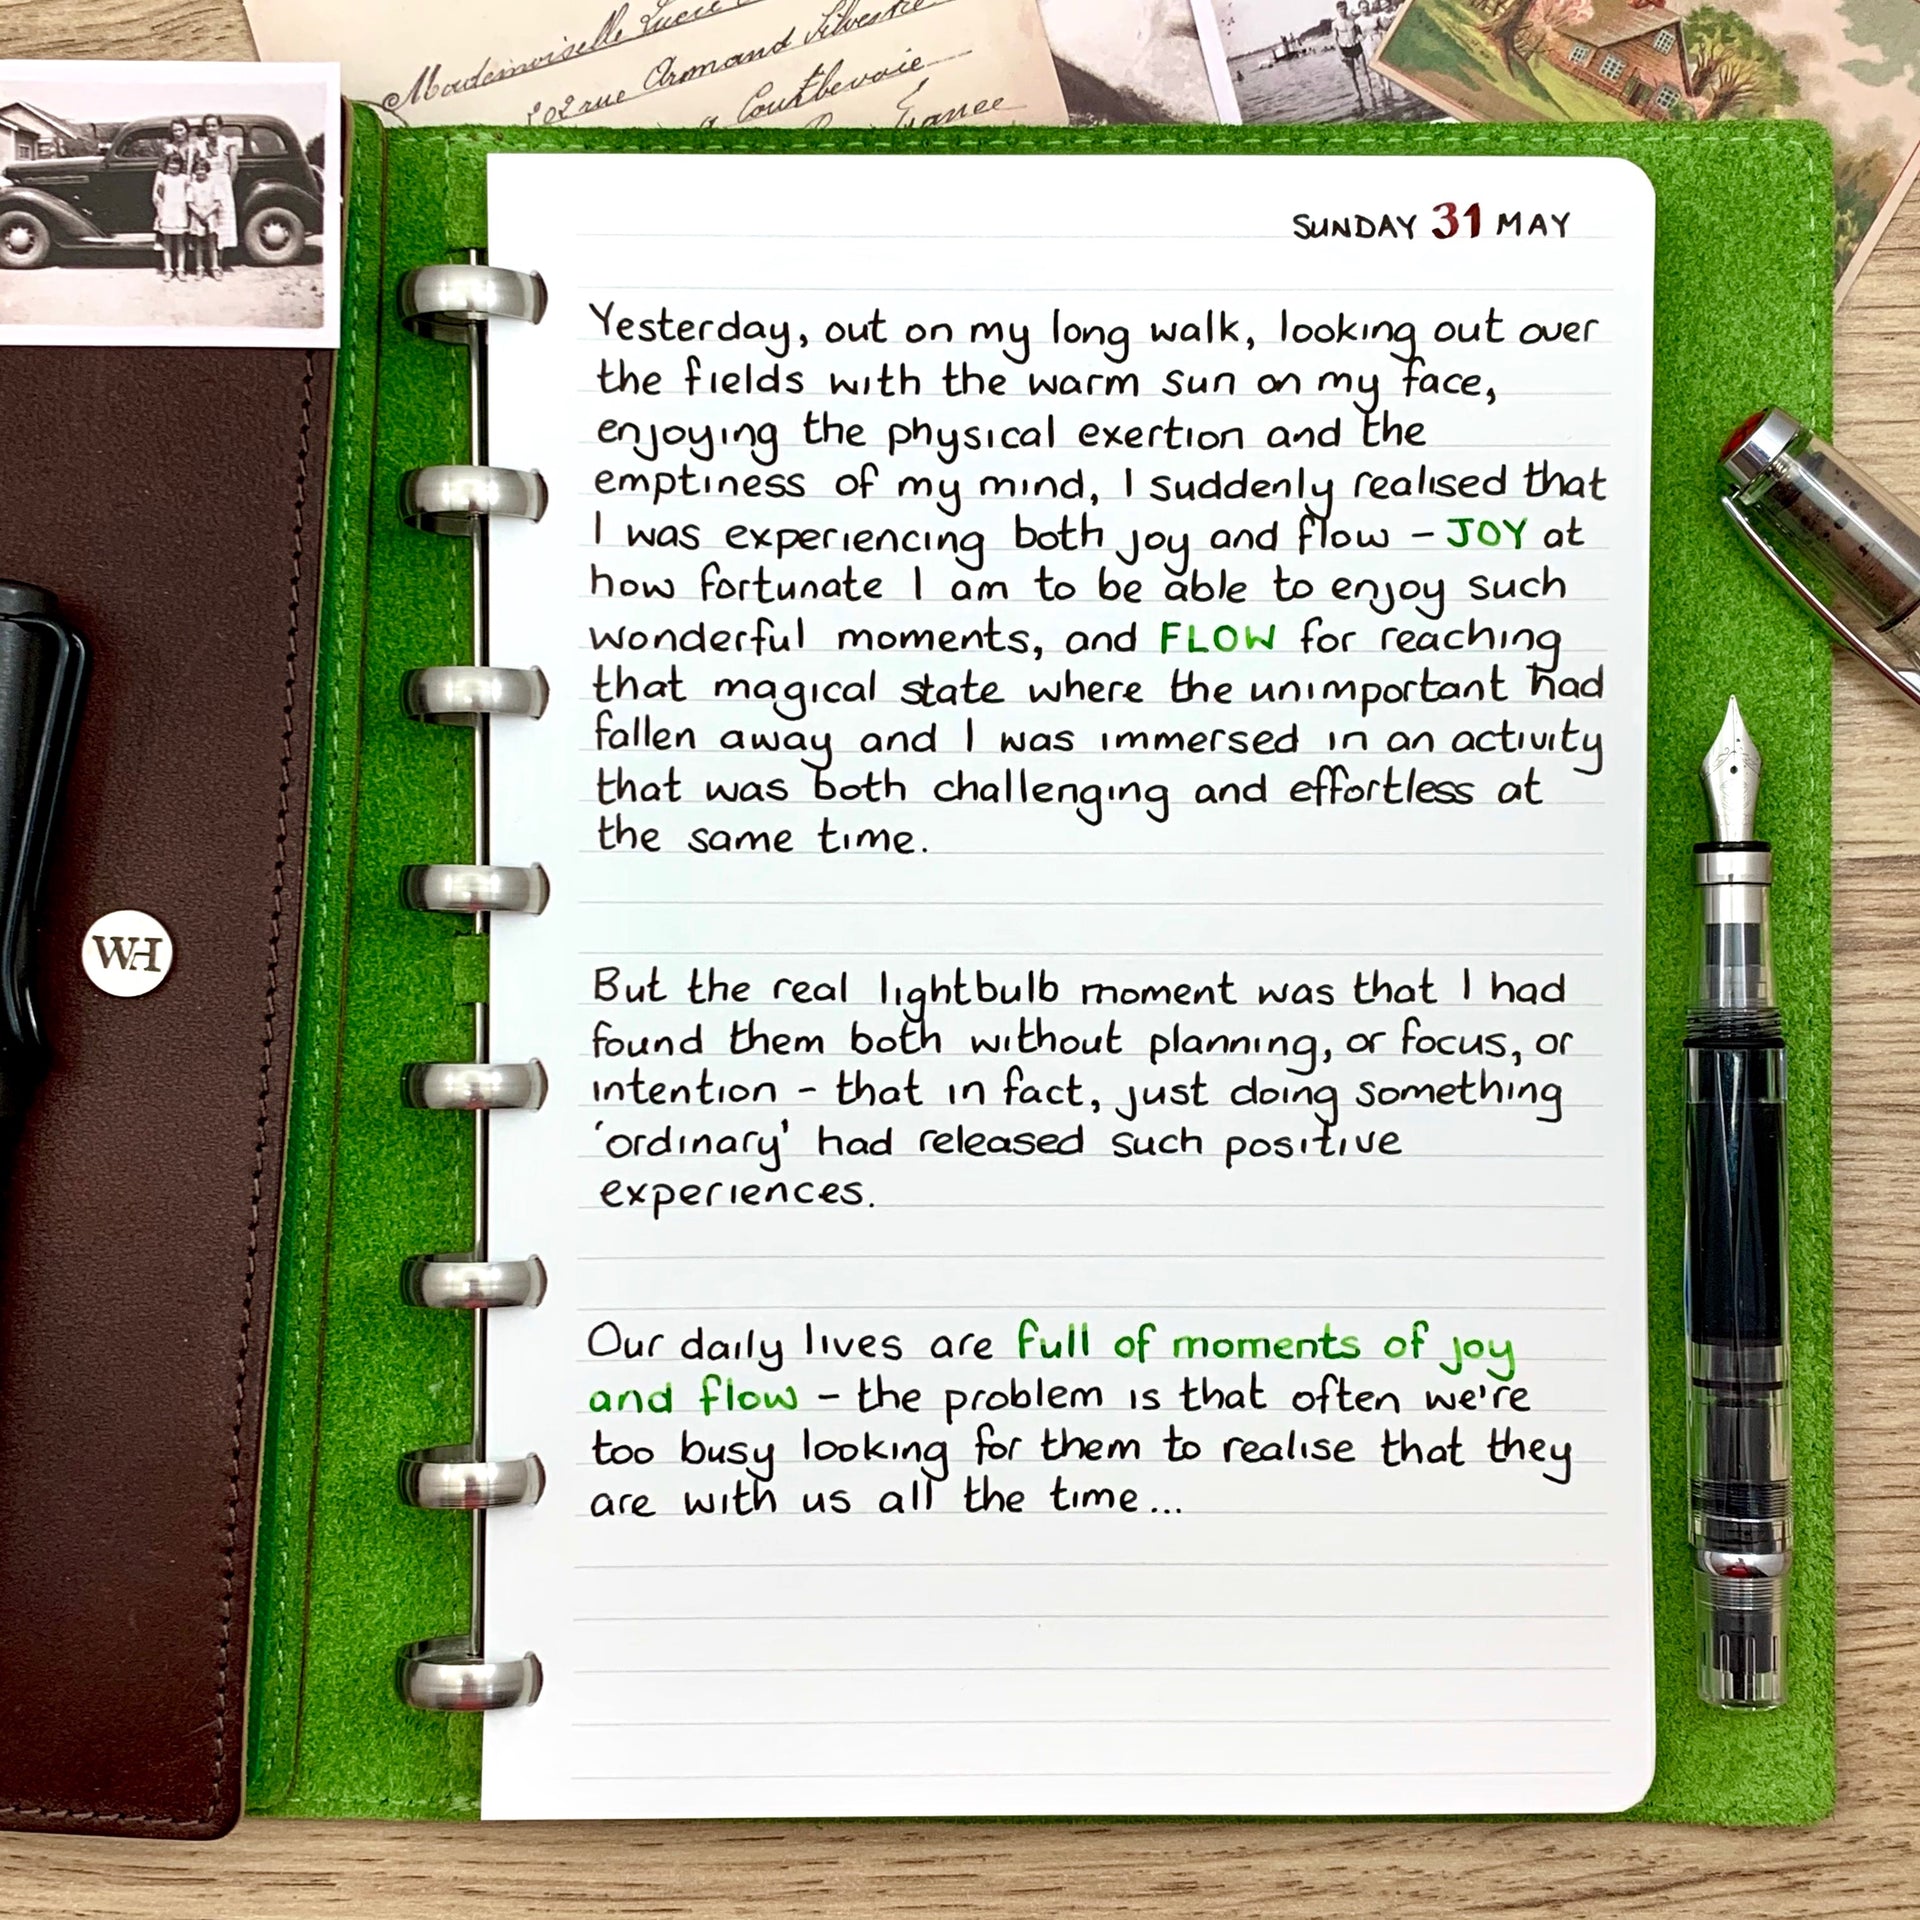 Mademoiselle Lucie
202 rue Armand Silvestre
Courbevoie
France
SUNDAY 31 MAY
Yesterday, out on my long walk, looking out over
the fields with the warm sun on my face,
enjoying the physical exertion and the
emptiness of my mind, I suddenly realised that
I was experiencing both joy and flow – JOY at
how fortunate I am to be able to enjoy such
wonderful moments, and FLOW for reaching
that magical state where the unimportant had
fallen away and I was immersed in an activity
that was both challenging and effortless at
the same time.
But the real lightbulb moment was that I had
found them both without planning, or focus, or
intention – that in fact, just doing something
'ordinary' had released such positive
experiences.
Our daily lives are full of moments of joy
and flow – the problem is that often we're
too busy looking for them to realise that they
are with us all the time...
WH